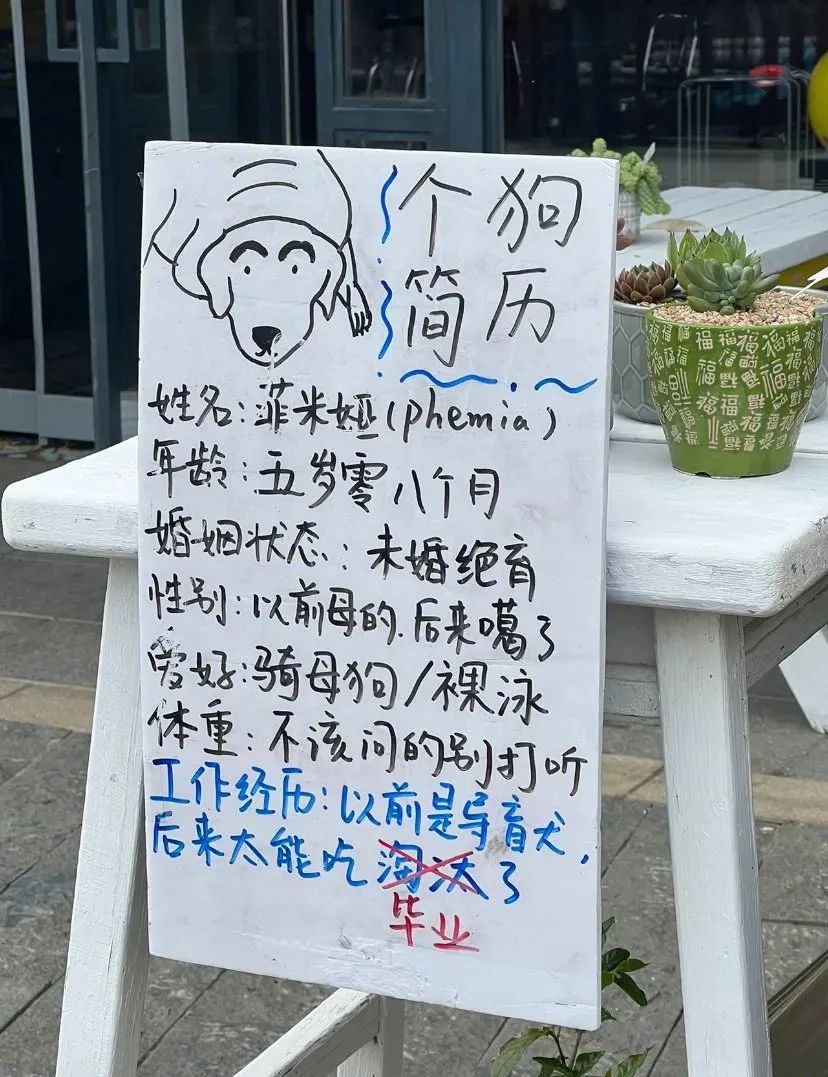 个狗
简历
姓名:菲米娅(phemia)
年龄:五岁零八个月
婚姻状态:未婚绝育
性别:以前母的.后来噶了
爱好:骑母狗/裸泳
体重:不该问的别打听
工作经历:以前是导盲犬,
后来太能吃淘汰了
毕业
福